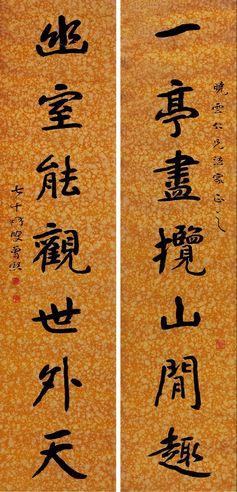 一亭盡攬山間趣
曉雲仁兄法家正之
幽室能觀世外天
七十叟曾熙